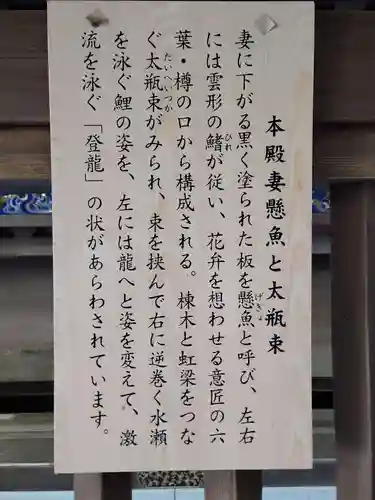 本殿妻懸魚と太瓶束
妻に下がる黒く塗られた板を懸魚と呼び、左右
げぎょ
には雲形の鰭が従い、花弁を想わせる意匠の六
ひれ
葉・樽の口から構成される。棟木と虹梁をつな
ぐ太瓶束がみられ、束を挟んで右に逆巻く水瀬
たいへいづか
を泳ぐ鯉の姿を、左には龍へと姿を変えて、激
流を泳ぐ「登龍」の状があらわされています。